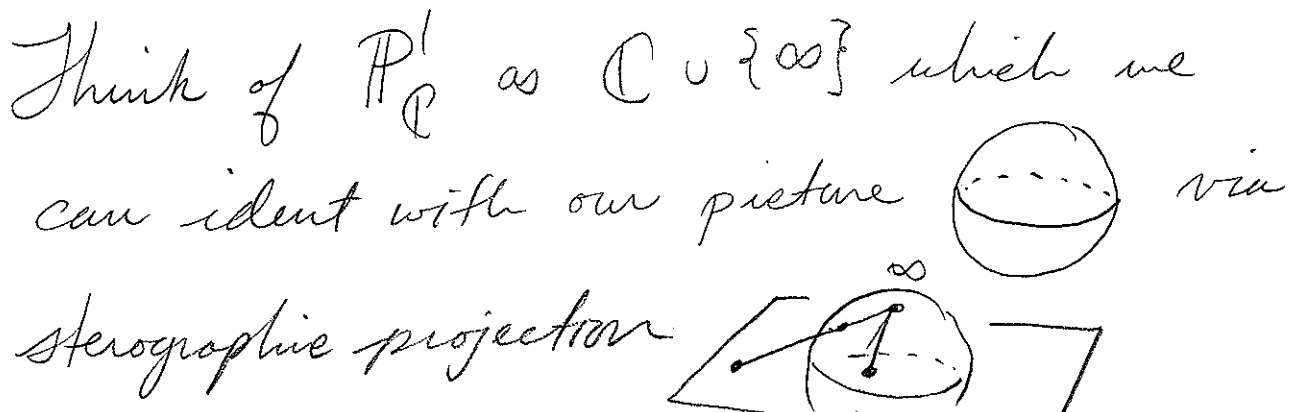 Think of ℙ¹_ℂ as ℂ ∪ {∞} which we
can ident with our picture via
∞
sterographic projection